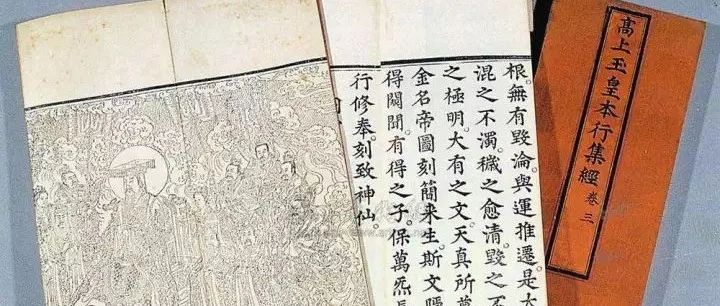 高上玉皇本行集經 卷三
根。無有毀淪。與運推遷。是
混之不濁。穢之愈清。毀之不
之極明。大有之文。天真所
金名帝圖。刻簡来生。斯文
得闚聞。有得之子。保萬炁
行修奉。刻致神仙。